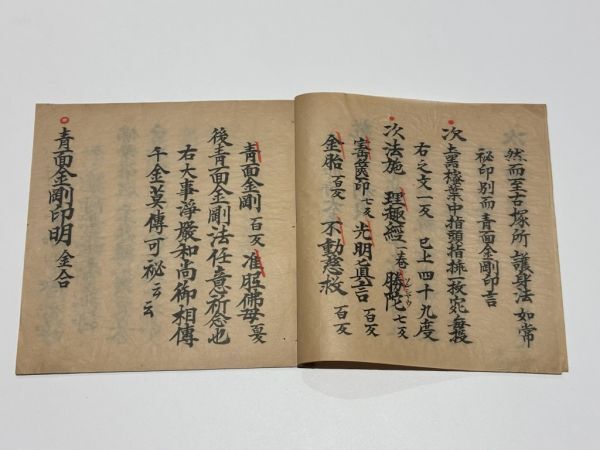 然而至古塚所 護身法 如常
秘印別而青面金剛印言
次 土黒檍葉中指頭指挟一枚宛毎投
右之文一反 已上四十九度
次法施 理趣経 一巻 勝陀 七反
宝篋印 七反 光明真言 百反
金胎 百反 不動慈救 百反
青面金剛 百反 准胝佛母 百反
後青面金剛法任意祈念也
右大事浄厳和尚御相傳
千金莫傳可秘云云
青面金剛印明 金合